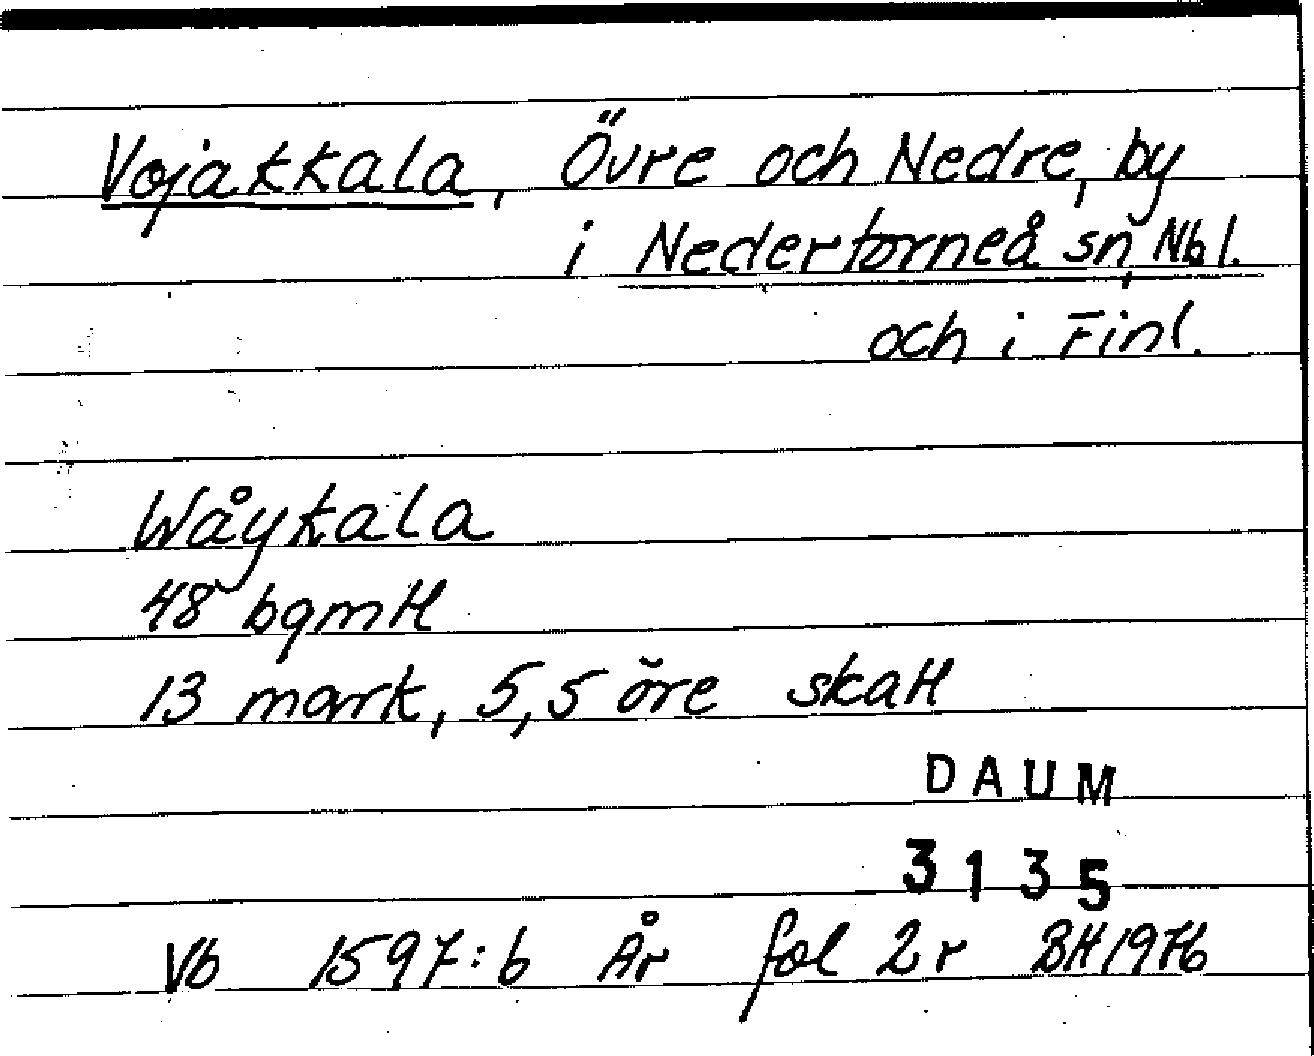 Vojakkala, Övre och Nedre, by
i Nedertorneå sn, Nbl.
och i Finl.
Wåykala
48 bgmtl
13 mark, 5,5 öre skatt
DAUM
3135
Vb 1597:6 År fol 2r BH 1976